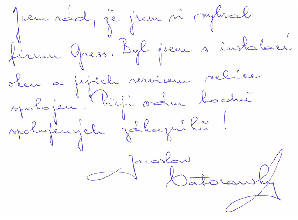 Jsem rád, že jsem si vybral
firmu Opess. Byl jsem s instalací
oken a jejich servisem velice
spokojen. Přeji vám hodně
spokojených zákazníků!
Jaroslav